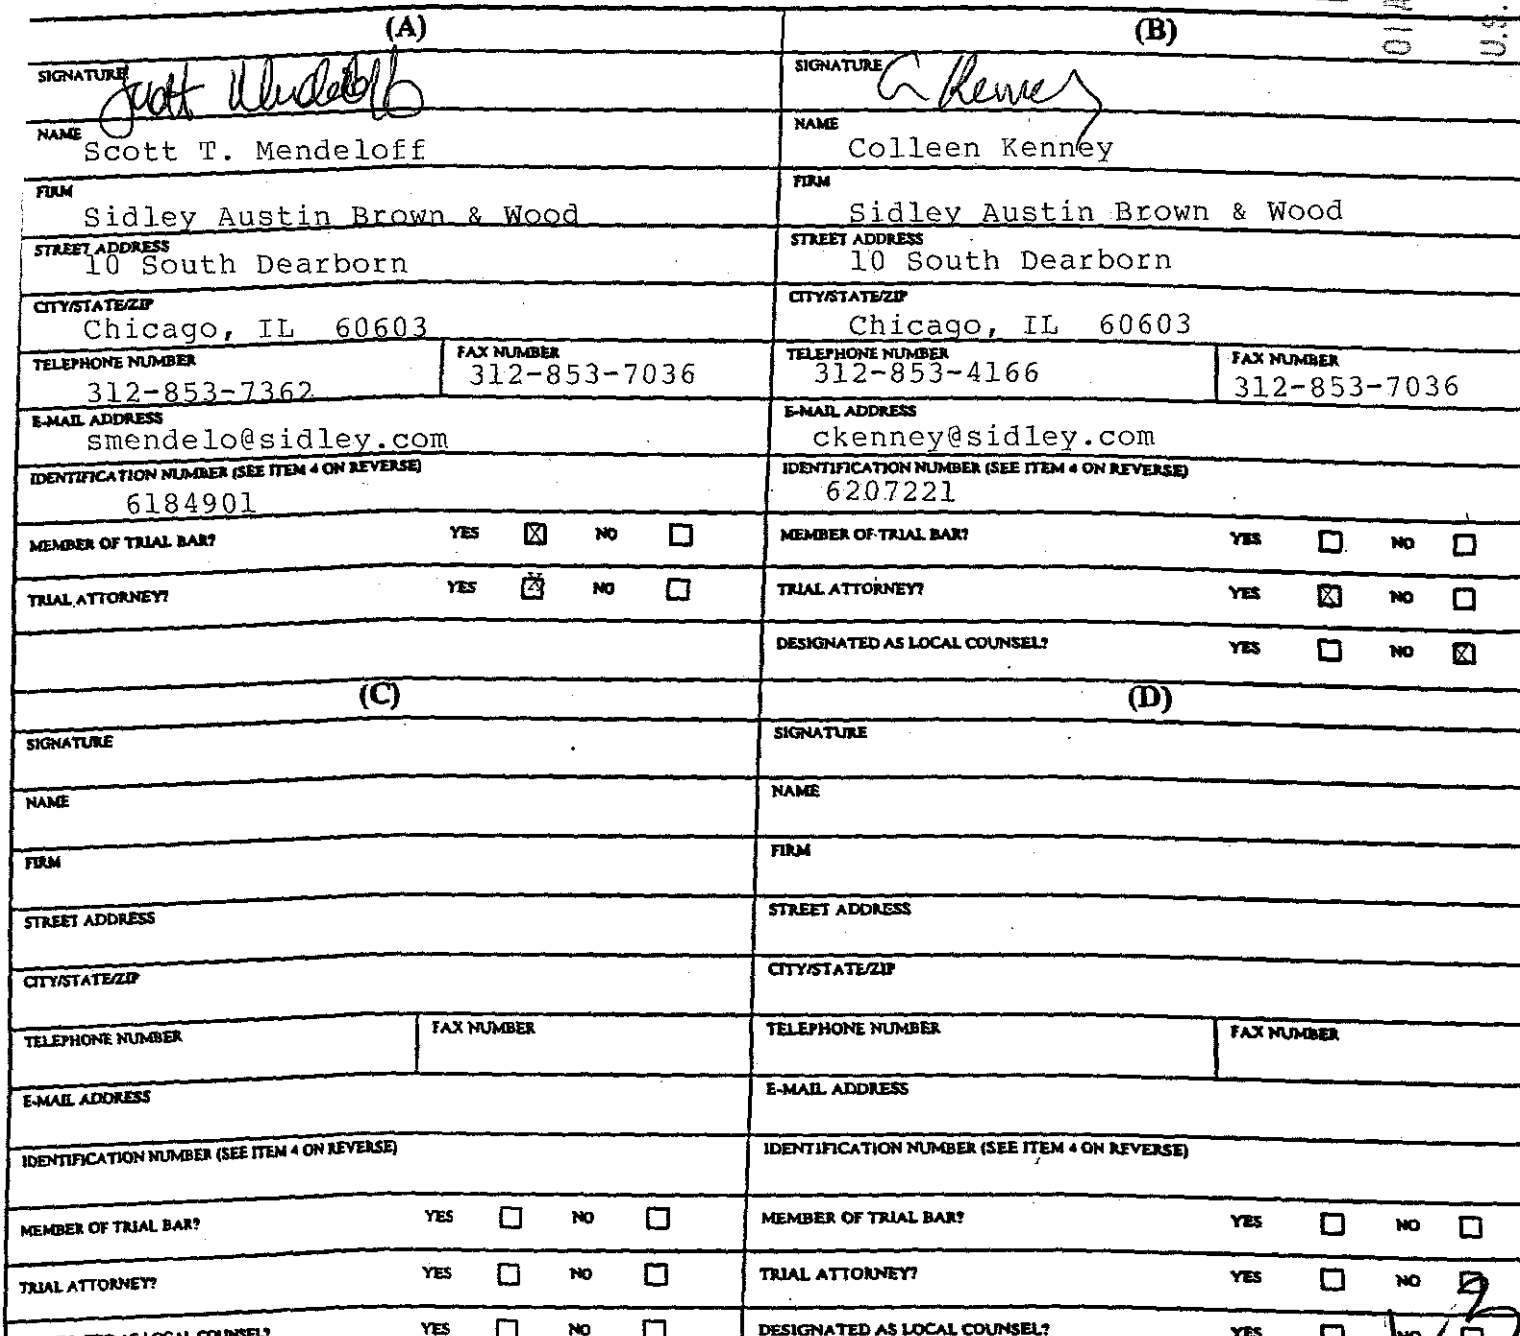 (A)
SIGNATURE Scott Mendeloff
NAME
Scott T. Mendeloff
FIRM
Sidley Austin Brown & Wood
STREET ADDRESS
10 South Dearborn
CITY/STATE/ZIP
Chicago, IL 60603
TELEPHONE NUMBER
312-853-7362
FAX NUMBER
312-853-7036
E-MAIL ADDRESS
smendelo@sidley.com
IDENTIFICATION NUMBER (SEE ITEM 4 ON REVERSE)
6184901
MEMBER OF TRIAL BAR? YES ☒ NO ☐
TRIAL ATTORNEY? YES ☒ NO ☐
(B)
SIGNATURE C Kenney
NAME
Colleen Kenney
FIRM
Sidley Austin Brown & Wood
STREET ADDRESS
10 South Dearborn
CITY/STATE/ZIP
Chicago, IL 60603
TELEPHONE NUMBER
312-853-4166
FAX NUMBER
312-853-7036
E-MAIL ADDRESS
ckenney@sidley.com
IDENTIFICATION NUMBER (SEE ITEM 4 ON REVERSE)
6207221
MEMBER OF TRIAL BAR? YES ☐ NO ☐
TRIAL ATTORNEY? YES ☒ NO ☐
DESIGNATED AS LOCAL COUNSEL? YES ☐ NO ☒
(C)
SIGNATURE
NAME
FIRM
STREET ADDRESS
CITY/STATE/ZIP
TELEPHONE NUMBER
FAX NUMBER
E-MAIL ADDRESS
IDENTIFICATION NUMBER (SEE ITEM 4 ON REVERSE)
MEMBER OF TRIAL BAR? YES ☐ NO ☐
TRIAL ATTORNEY? YES ☐ NO ☐
AS LOCAL COUNSEL? YES ☐ NO ☐
(D)
SIGNATURE
NAME
FIRM
STREET ADDRESS
CITY/STATE/ZIP
TELEPHONE NUMBER
FAX NUMBER
E-MAIL ADDRESS
IDENTIFICATION NUMBER (SEE ITEM 4 ON REVERSE)
MEMBER OF TRIAL BAR? YES ☐ NO ☐
TRIAL ATTORNEY? YES ☐ NO ☐
DESIGNATED AS LOCAL COUNSEL? YES ☐ NO ☐
01
U.S.